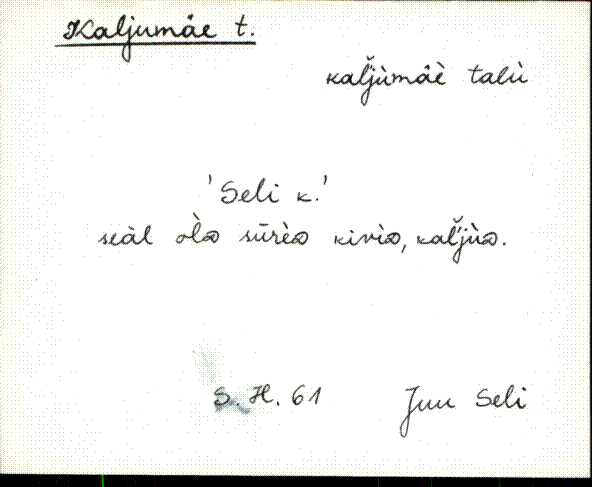 Kaljumäe t.
kal̆jùmäè talù
'Seli k.'
seàl òlɒ sūrèɒ kivìɒ, kal̆jùɒ.
S. H. 61 Juu Seli